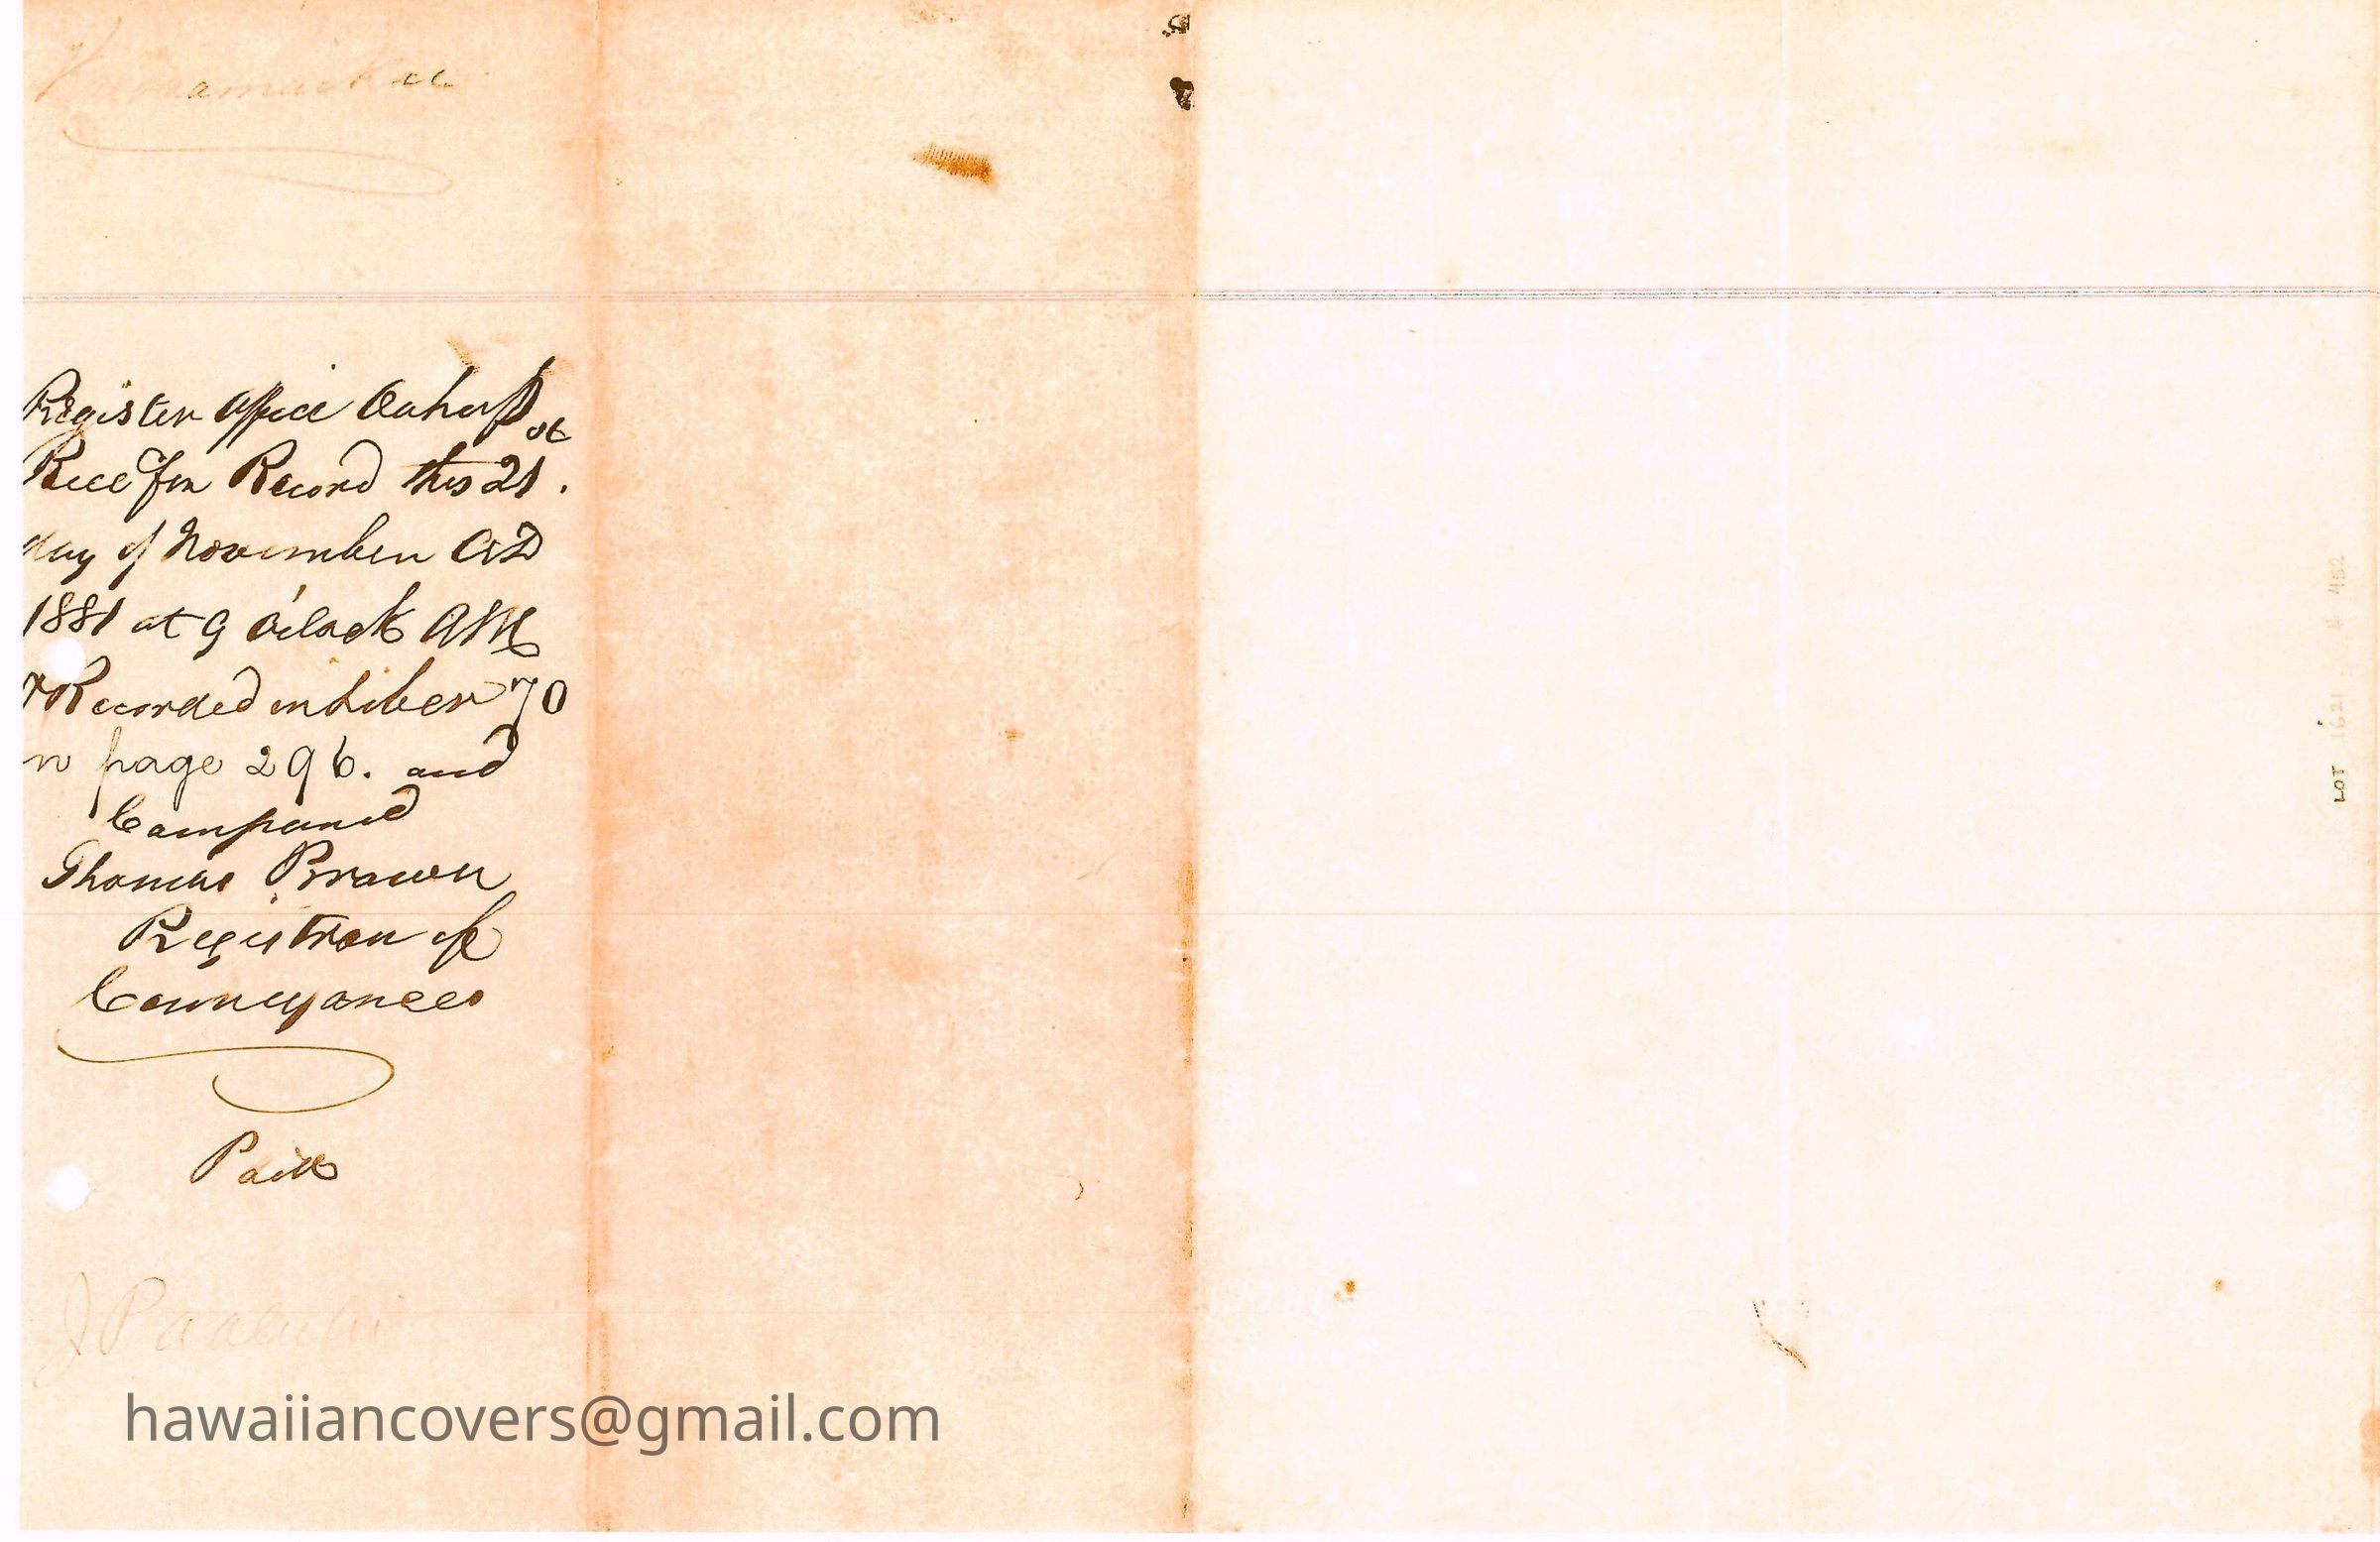 Register Office Oahu ss
Rec'd for Record this 21st
day of November AD
1881 at 9 o'clock AM
& Recorded in Liber 70
n page 296. and
Compared
Thomas Brown
Registrar of
Conveyances
Paid
J Paaluhi
hawaiiancovers@gmail.com
LOT 1621